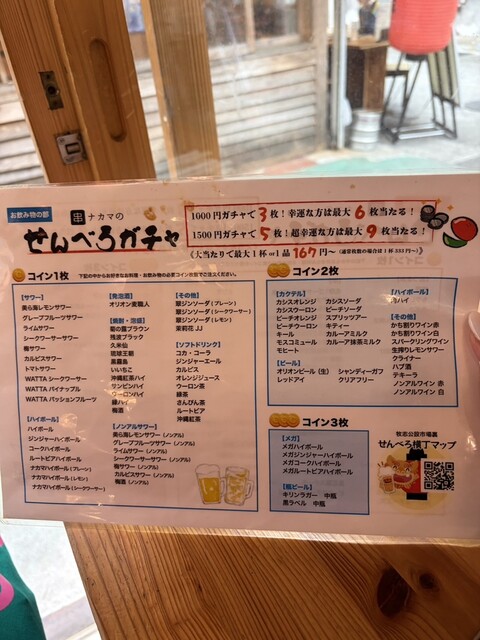 お飲み物の部
串 ナカマの
せんべろガチャ
1000円ガチャで3枚!幸運な方は最大6枚当たる!
1500円ガチャで5枚!超幸運な方は最大9枚当たる!
《大当たりで最大1杯or1品167円〜(通常枚数の場合は1杯333円〜)
コイン1枚
下記の中からお好きなお料理・お飲み物の必要コイン枚数でご注文ください。
【サワー】
美ら海レモンサワー
グレープフルーツサワー
ライムサワー
シークワーサーサワー
梅サワー
カルピスサワー
トマトサワー
WATTA シークワーサー
WATTA パイナップル
WATTA パッションフルーツ
【ハイボール】
ハイボール
ジンジャーハイボール
コークハイボール
ルートビアハイボール
ナカマハイボール(プレーン)
ナカマハイボール(レモン)
ナカマハイボール(シークワーサー)
【発泡酒】
オリオン麦職人
【焼酎・泡盛】
菊の露ブラウン
残波ブラック
久米仙
琉球王朝
黒霧島
いいちこ
沖縄紅茶ハイ
サンピンハイ
ウーロンハイ
緑ハイ
梅酒
【ノンアルサワー】
美ら海レモンサワー(ノンアル)
グレープフルーツサワー(ノンアル)
ライムサワー(ノンアル)
シークワーサーサワー(ノンアル)
梅サワー(ノンアル)
カルピスサワー(ノンアル)
梅酒(ノンアル)
【その他】
翠ジンソーダ(プレーン)
翠ジンソーダ(シークワーサー)
翠ジンソーダ(レモン)
茉莉花 JJ
【ソフトドリンク】
コカ・コーラ
ジンジャーエール
カルピス
オレンジジュース
ウーロン茶
緑茶
さんぴん茶
ルートビア
沖縄紅茶
コイン2枚
【カクテル】
カシスオレンジ
カシスウーロン
ピーチオレンジ
ピーチウーロン
キール
モスコミュール
モヒート
カシスソーダ
ピーチソーダ
スプリッツアー
キティー
カルーアミルク
カルーア抹茶ミルク
【ビール】
オリオンビール(生)
レッドアイ
シャンディーガフ
クリアフリー
【ハイボール】
ハイ
【その他】
かち割りワイン赤
かち割りワイン白
スパークリングワイン
生搾りレモンサワー
クライナー
ハブ酒
テキーラ
ノンアルワイン 赤
ノンアルワイン 白
コイン3枚
【メガ】
メガハイボール
メガジンジャーハイボール
メガコークハイボール
メガルートビアハイボール
【瓶ビール】
キリンラガー 中瓶
黒ラベル 中瓶
牧志公設市場裏
せんべろ横丁マップ